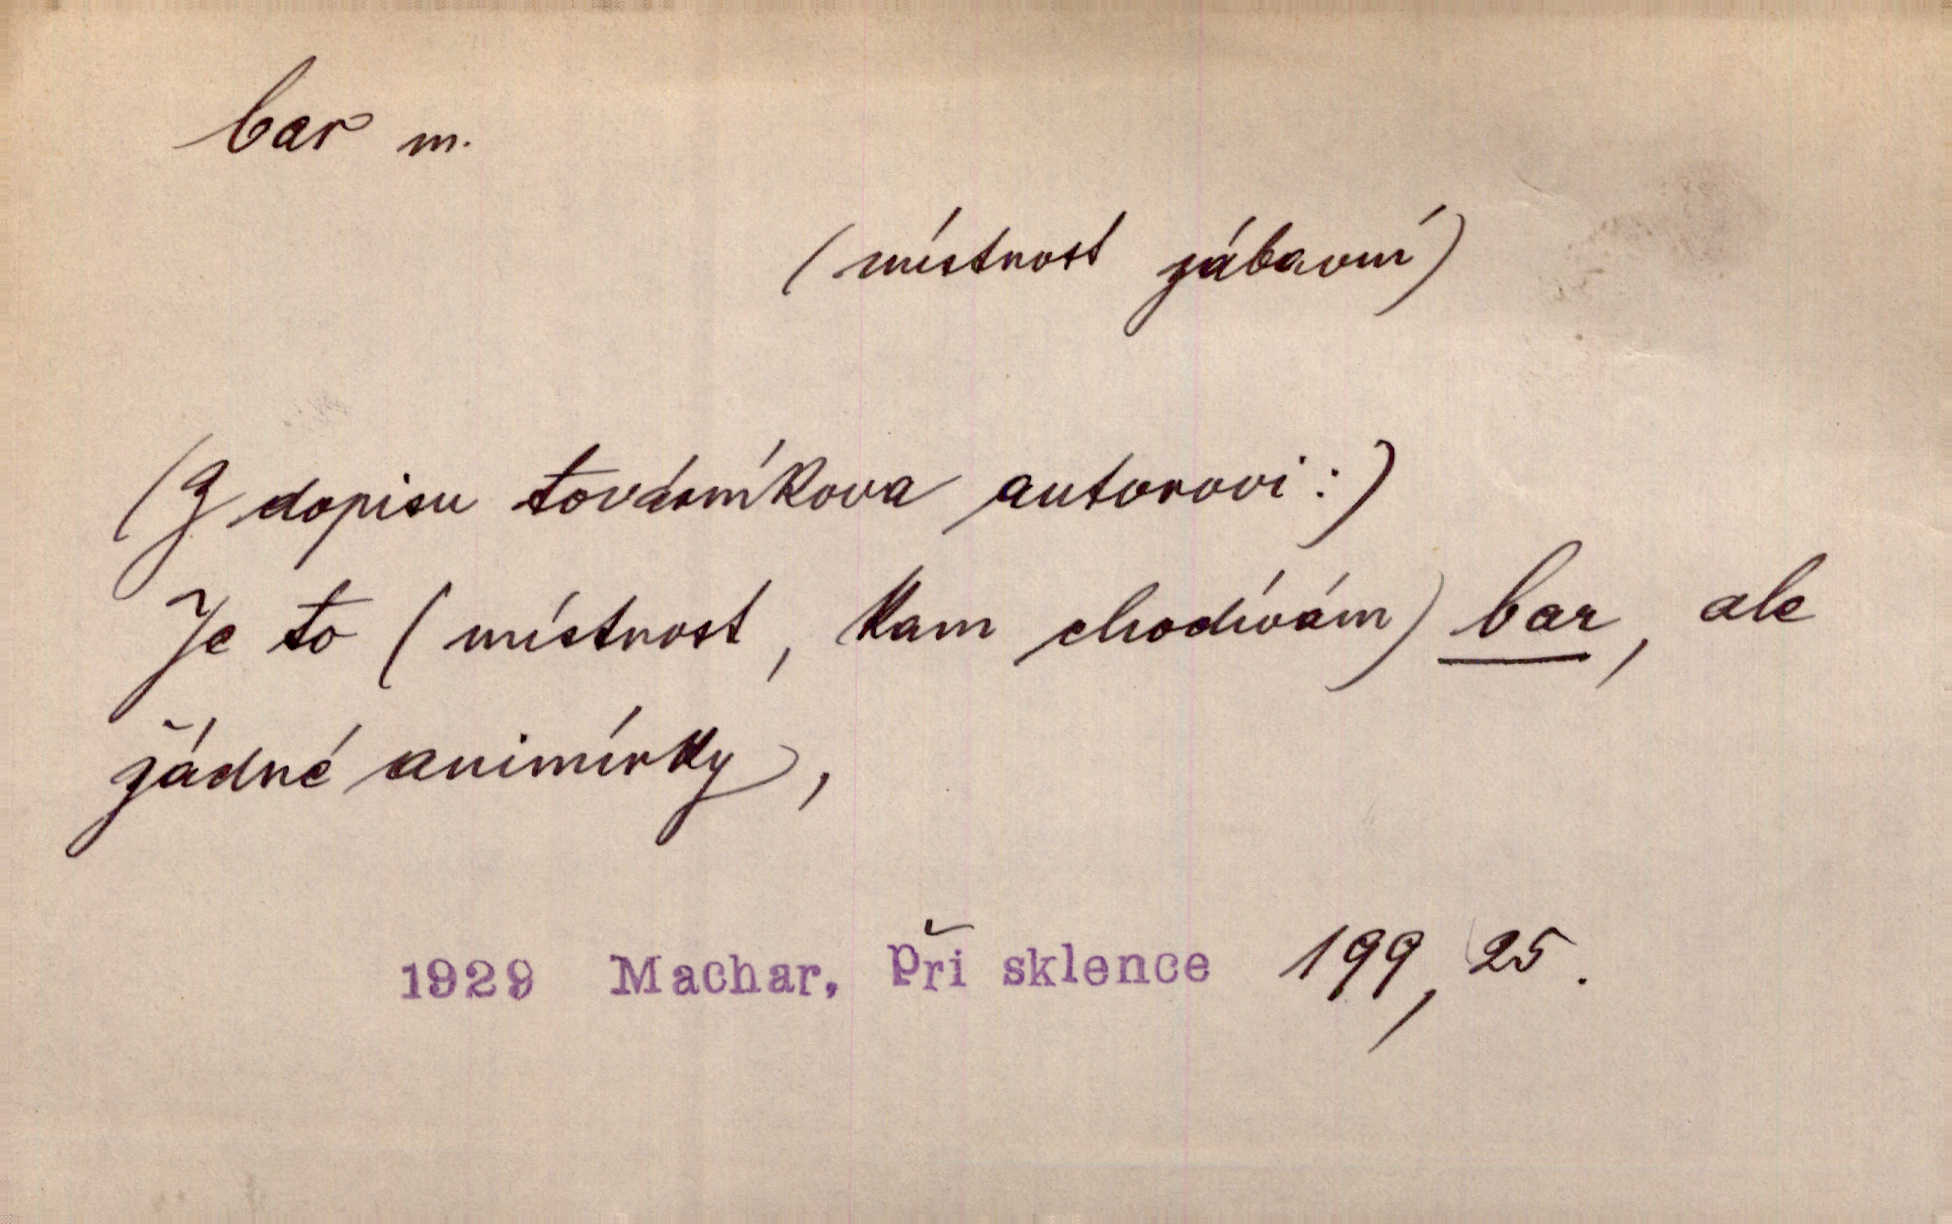 bar m.
(místnost zábavní)
(Z dopisu továrníkova autorovi:)
Je to (místnost, kam chodívám) bar, ale
žádné animírky,
1929 Machar, Při sklence 199, 25.